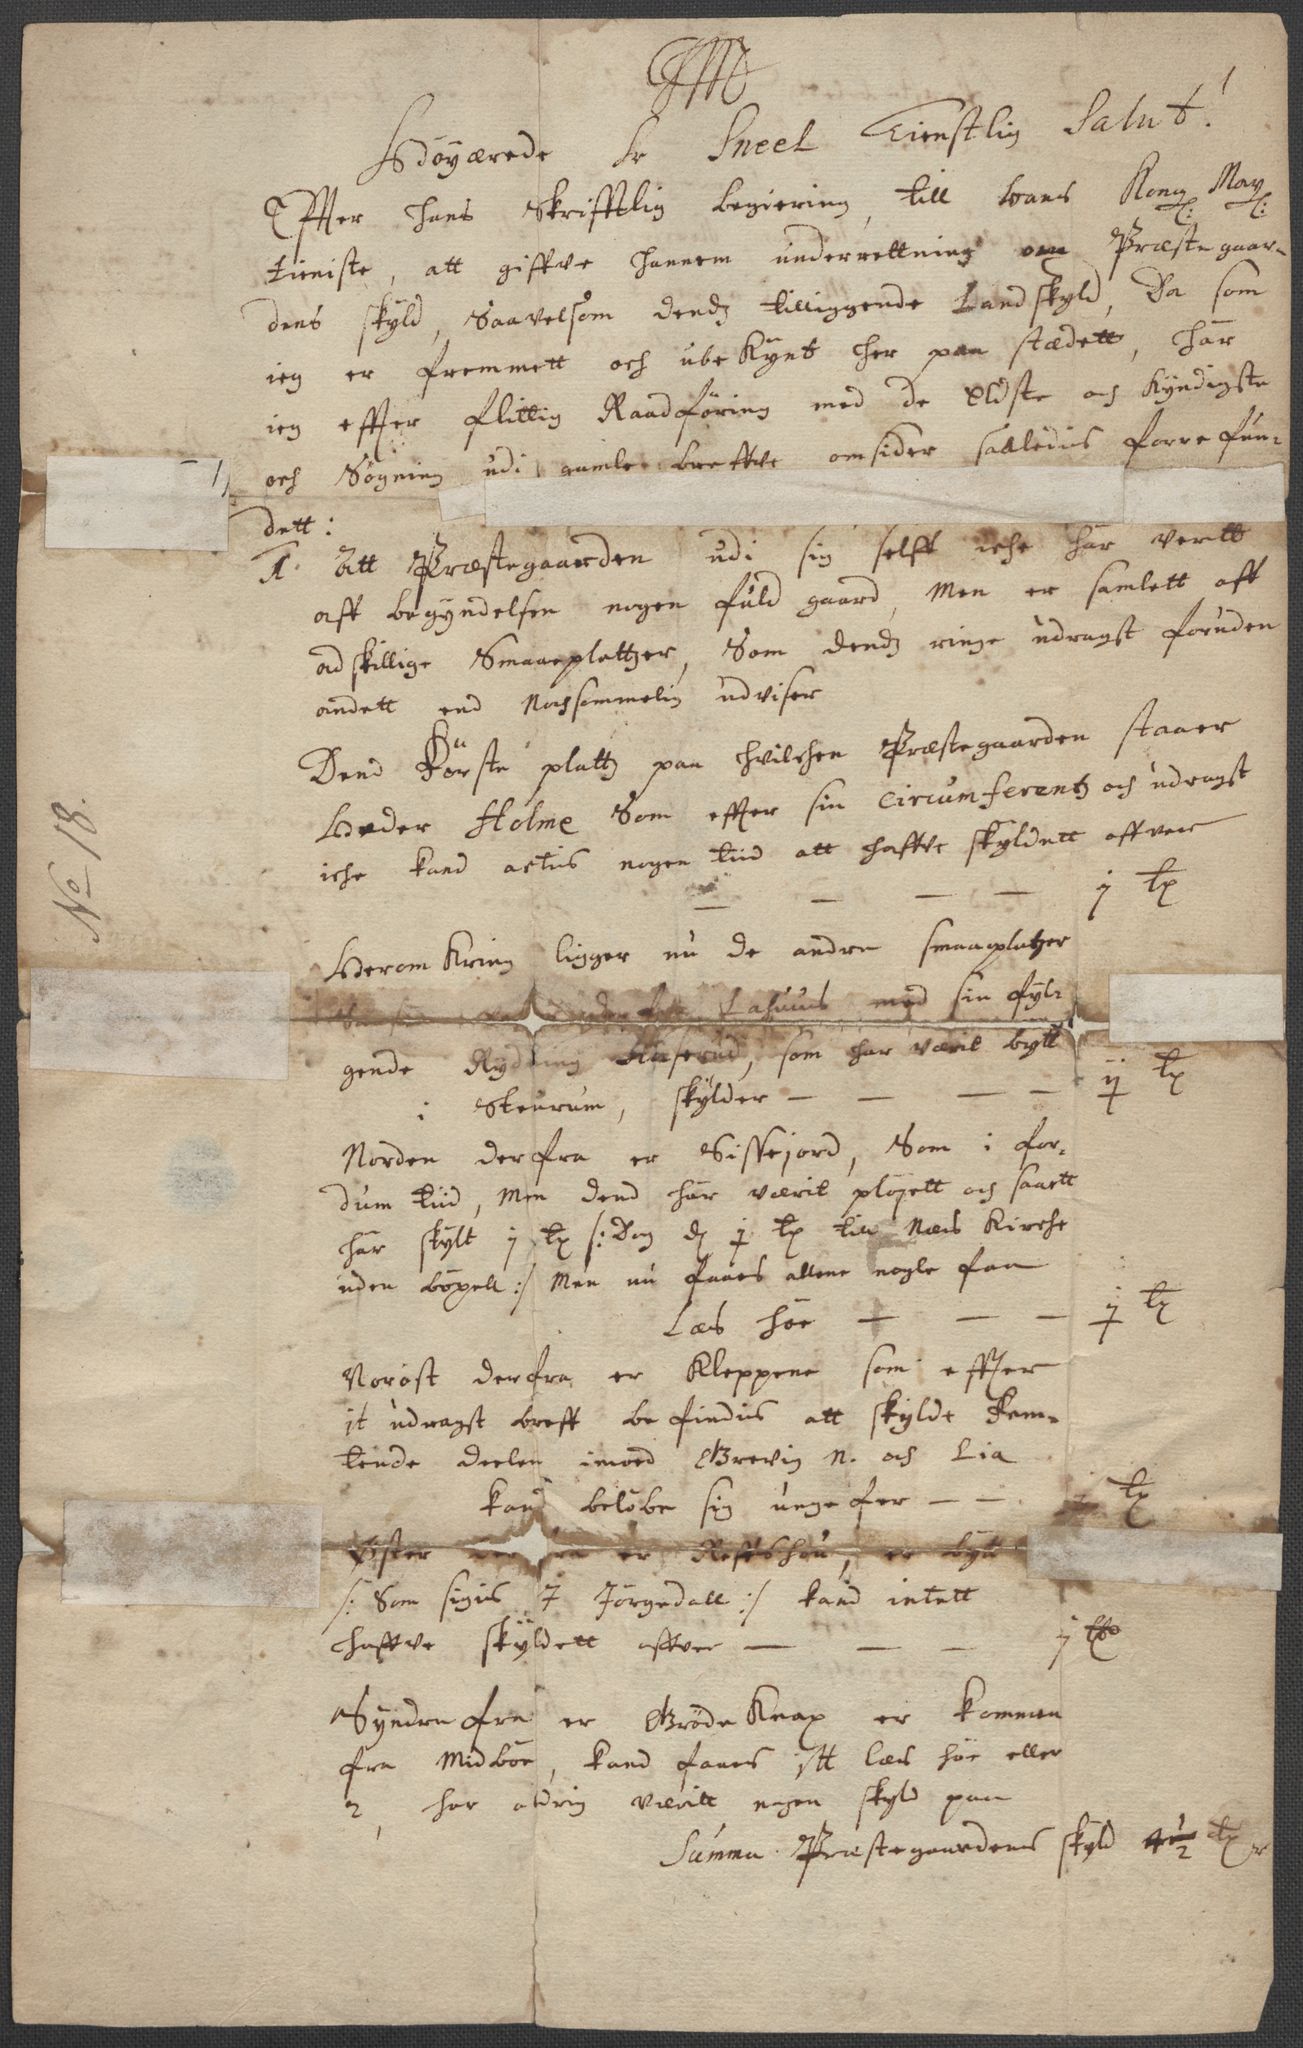 Höyærede Sr Sneel Tienstlig Salut!
Effter hans Skrifftlig begiering, till hans Kong: May:
tieniste, att giffve hannem underrettning om Præstegaar-
dens skyld, Saavelsom dendz tilliggende Landskyld, Da som
ieg er fremmett och ubekynt her paa stædett, har
ieg effter flittig Raadföring med de Eldste och kyndigste
och Søgning udi gamle breffve omsider saaledis forrefun-
dett:
1. Att Præstegaarden udi sig selff iche har verett
aff begyndelsen nogen fuld gaard, Men er samlett aff
adskillige Smaaplattzer, Som dendz ringe udragt foruden
andett end nochsommelig udviser
Dend Förste plattz paa hvilchen Præstegaarden staaer
Heder Holme Som effter sin circumferentz och udragt
iche kand actis nogen tiid att haffve skyldett offver
— — — — j tp
Herom kring ligger nu de andre smaaplatzer
med sin fyl-
gende Rydning Huserud, som har værit bytt
i Steurum, skylder — — — — ij tp
Norden derfra er Sissejord, Som i for-
dum tiid, Men dend har værit plöyett och saaett
har skylt j tp /: Dog dz j tp till Næs Kirche
uden böxell :/ Men nu faaes allene nogle faa
Læs höe — — — j tp
Norost derfra er Kleppene som effter
it udragst breff befindis att skylde Fem-
tende deelen imod Grevig N. och Lia
kand belöbe sig ungefer — — tp
Öster derfra er Reffshou, er bytt
/: Som sigis J Jörgedall :/ kand intett
haffve skyldett offver — — — j tp
Syndre fra er Gröde Knap er kommen
fra Midböe, kand faaes itt læs höe eller
2, har aldrig værett nogen skyld paa
Summa Præstegaardens skyld 4½ tp
No 18.